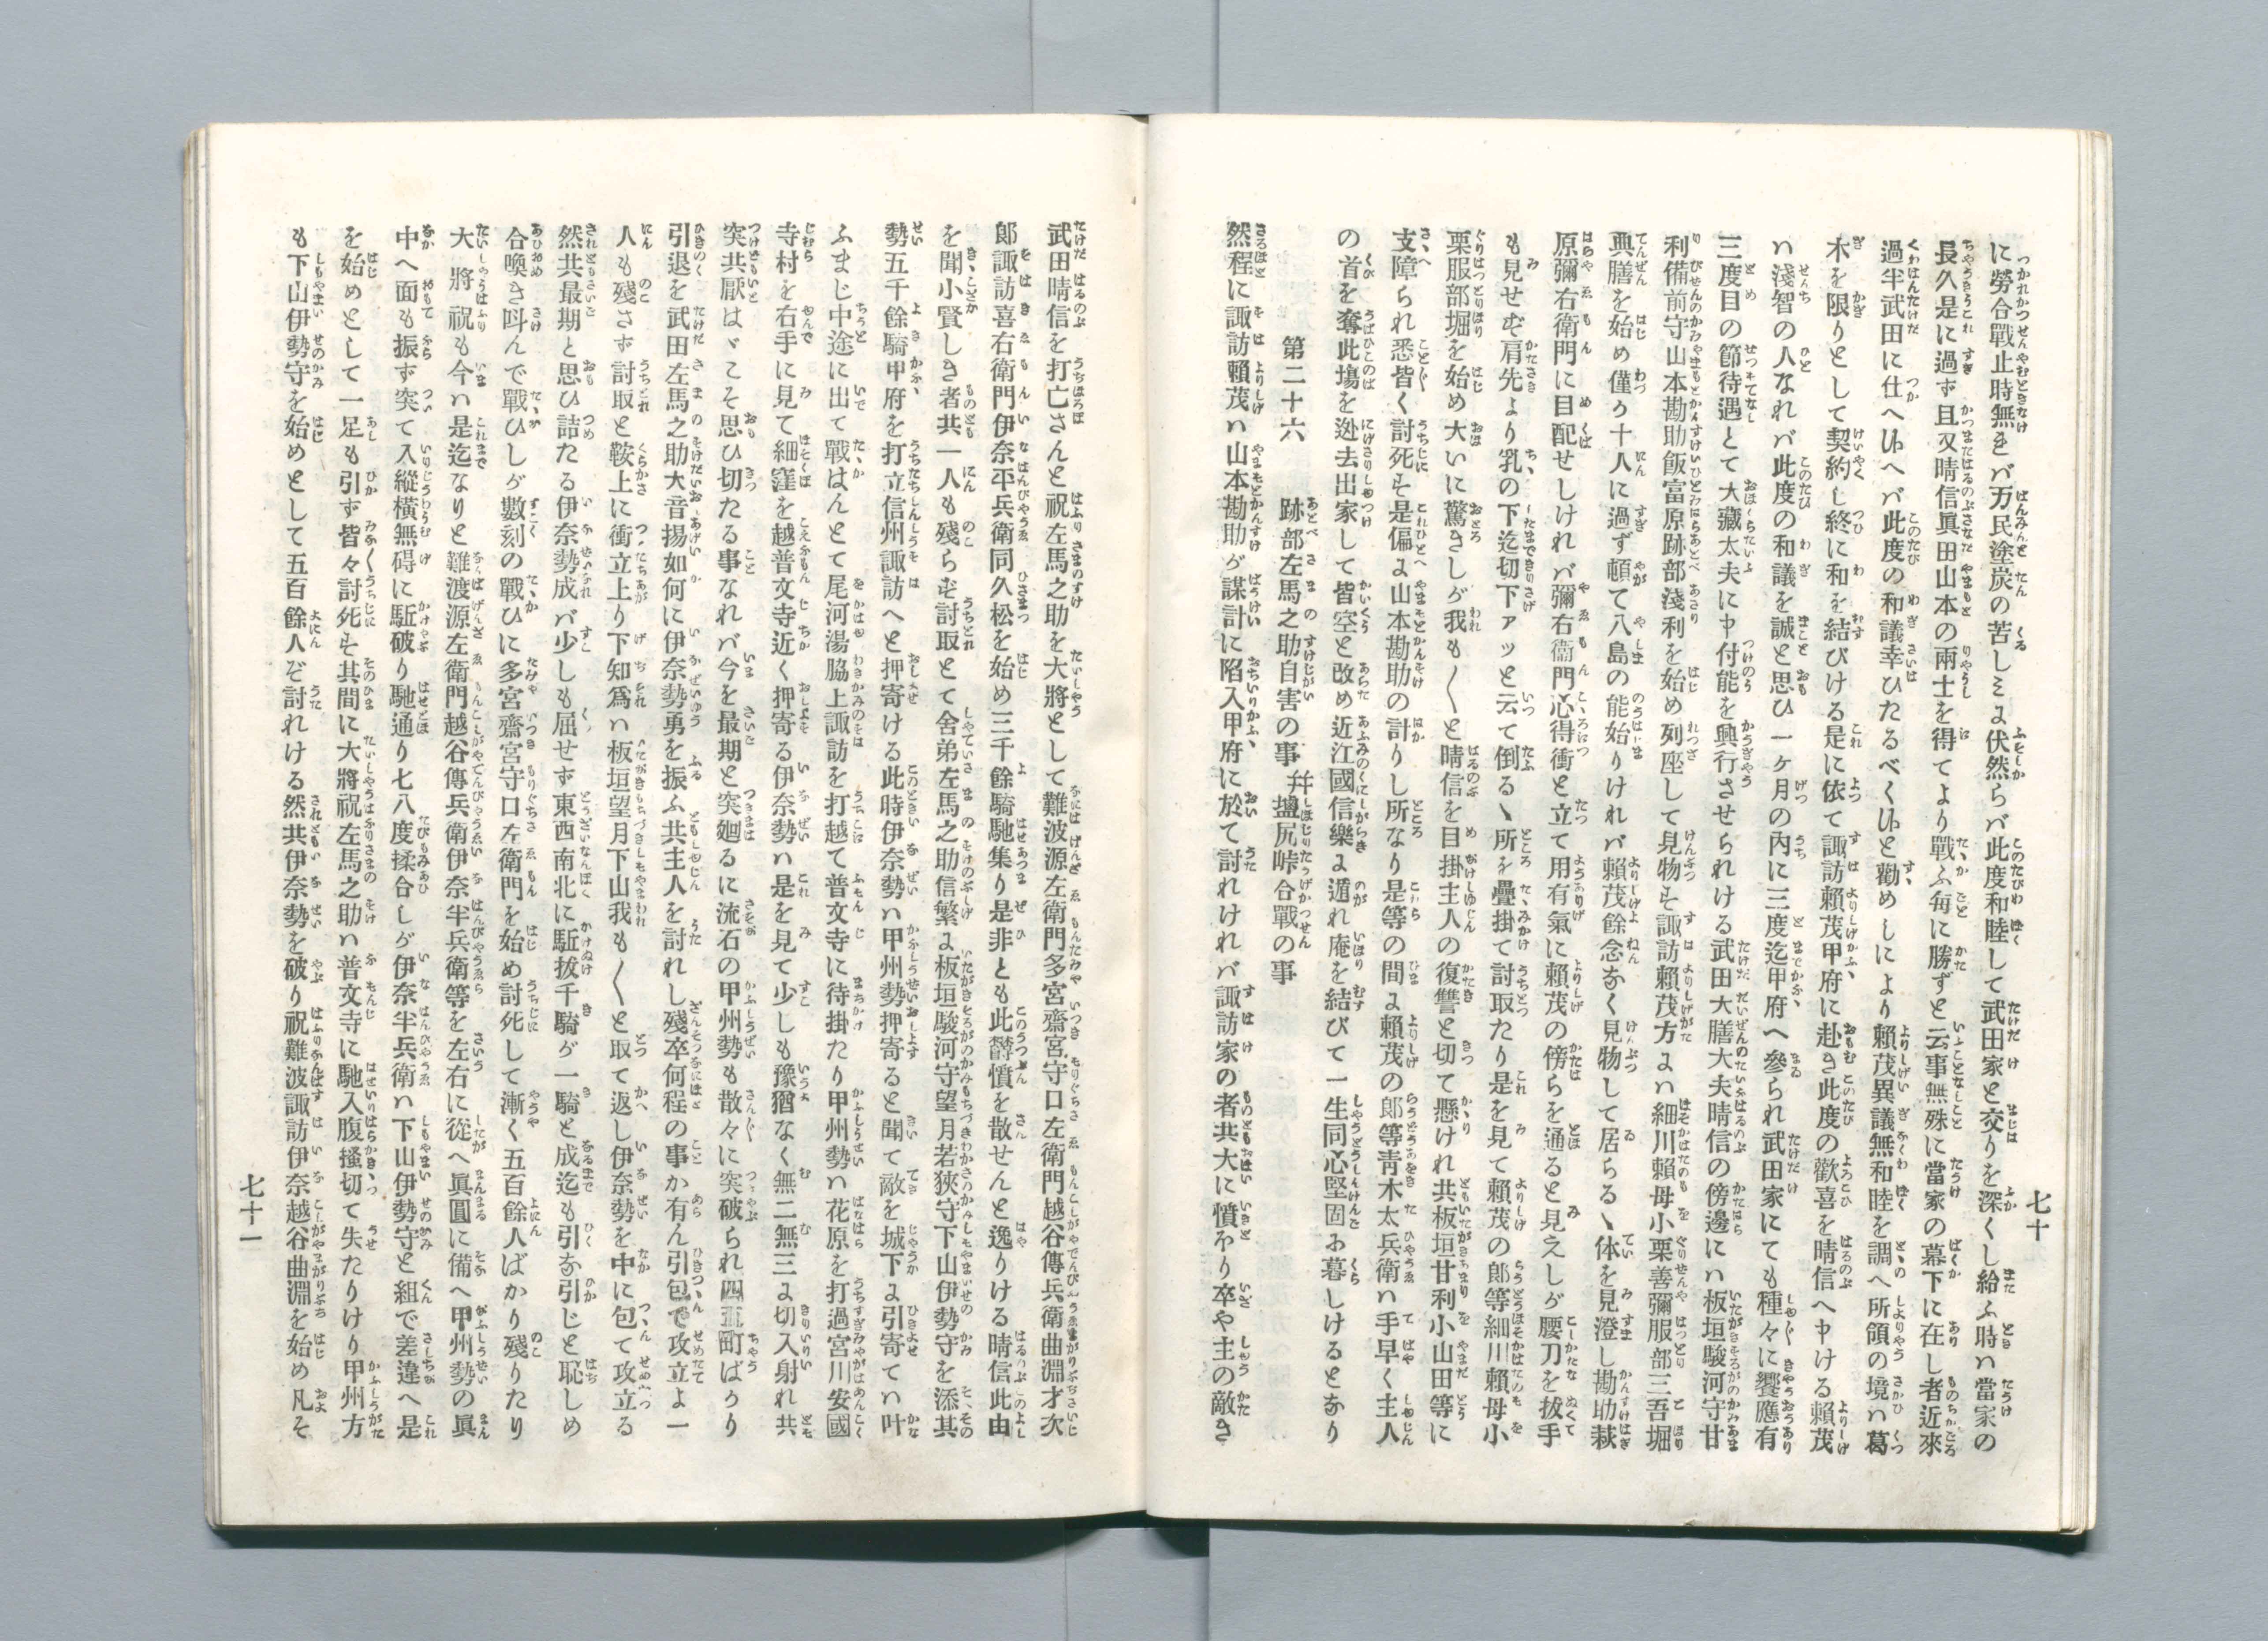 七十
に勞合戰止時無きバ万民塗炭の苦しミよ伏然らバ此度和睦して武田家と交りを深くし給ふ時ハ當家の
長久是に過ず且又晴信眞田山本の兩士を得てより戰ふ毎に勝ずと云事無殊に當家の幕下に在し者近來
過半武田に仕へ申へバ此度の和議幸ひたるべく申と勸めしにより頼茂異議無和睦を調へ所領の境ハ葛
木を限りとして契約し終に和を結びける是に依て諏訪頼茂甲府に赴き此度の歡喜を晴信へ申ける頼茂
ハ淺智の人なれバ此度の和議を誠と思ひ一ヶ月の内に三度迄甲府へ參られ武田家にても種々に饗應有
三度目の節待遇とて大藏太夫に申付能を興行させられける武田大膳大夫晴信の傍邊にハ板垣駿河守甘
利備前守山本勘助飯富原跡部淺利を始め列座して見物も諏訪頼茂方よハ細川頼母小栗善彌服部三吾堀
典膳を始め僅か十人に過ず頓て八島の能始りけれバ頼茂餘念なく見物して居らるゝ体を見澄し勘助萩
原彌右衛門に目配せしけれバ彌右衞門心得衝と立て用有氣に頼茂の傍らを通ると見えしが腰刀を拔手
も見せず肩先より乳の下迄切下アッと云て倒るゝ所を疊掛て討取たり是を見て頼茂の郎等細川頼母小
栗服部堀を始め大いに驚きしが我も〱と晴信を目掛主人の復讐と切て懸けれ共板垣甘利小山田等に
支障られ悉皆く討死も是偏よ山本勘助の計りし所なり是等の間よ頼茂の郎等青木太兵衛ハ手早く主人
の首を奪此塲を迯去出家して皆空と改め近江國信樂よ遁れ庵を結びて一生同心堅固お暮しけるとなり
第二十六　跡部左馬之助自害の事并鹽尻峠合戰の事
然程に諏訪頼茂ハ山本勘助が謀計に陷入甲府に於て討れけれバ諏訪家の者共大に憤おり卒や主の敵き
武田晴信を打亡さんと祝左馬之助を大將として難波源左衛門多宮齋宮守口左衛門越谷傳兵衛曲淵才次
郎諏訪喜右衛門伊奈平兵衛同久松を始め三千餘騎馳集り是非とも此欝憤を散せんと逸りける晴信此由
を聞小賢しき者共一人も殘らず討取とて舍弟左馬之助信繁よ板垣駿河守望月若狹守下山伊勢守を添其
勢五千餘騎甲府を打立信州諏訪へと押寄ける此時伊奈勢ハ甲州勢押寄ると聞て敵を城下よ引寄てハ叶
ふまじ中途に出て戰はんとて尾河湯脇上諏訪を打越て普文寺に待掛たり甲州勢ハ花原を打過宮川安國
寺村を右手に見て細窪を越普文寺近く押寄る伊奈勢ハ是を見て少しも豫猶なく無二無三よ切入射れ共
突共厭はゞこそ思ひ切たる事なれバ今を最期と突廻るに流石の甲州勢も散々に突破られ四五町ばかり
引退を武田左馬之助大音揚如何に伊奈勢勇を振ふ共主人を討れし殘卒何程の事か有ん引包で攻立よ一
人も殘さず討取と鞍上に衝立上り下知爲ハ板垣望月下山我も〱と取て返し伊奈勢を中に包て攻立る
然共最期と思ひ詰たる伊奈勢成バ少しも屈せず東西南北に駈拔千騎が一騎と成迄も引な引じと恥しめ
合喚き叫んで戰ひしが數刻の戰ひに多宮齋宮守口左衛門を始め討死して漸く五百餘人ばかり殘りたり
大將祝も今ハ是迄なりと難渡源左衛門越谷傳兵衛伊奈半兵衛等を左右に從へ眞圓に備へ甲州勢の眞
中へ面も振ず突て入縱橫無碍に駈破り馳通り七八度揉合しが伊奈半兵衛ハ下山伊勢守と組で差違へ是
を始めとして一足も引ず皆々討死も其間に大將祝左馬之助ハ普文寺に馳入腹搔切て失たりけり甲州方
も下山伊勢守を始めとして五百餘人ぞ討れける然共伊奈勢を破り祝難波諏訪伊奈越谷曲淵を始め凡そ
七十一